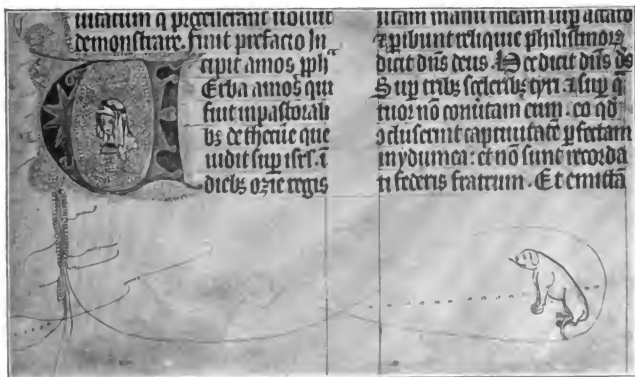 uitatum q precellerant noluit
demonstrare. Finit prefacio In
cipit amos ph̄
Erba amos qui
fuit in pastorali
bꝫ de thecue que
uidit sup isrl. ī
diebꝫ ozie regis
uitam manū meam sup accaro
⁊ pibunt reliquie philistinoꝝ
dicit dn̄s deus. Hec dicit dn̄s dš
Sup tribꝫ sceleribꝫ tyri ⁊ sup q̄
tuor nō conūtam eum. eo qđ
ↄcluserint captiuitatē pfectam
in ydumea: et nō sunt recorda
ti federis fratrum. Et emittā